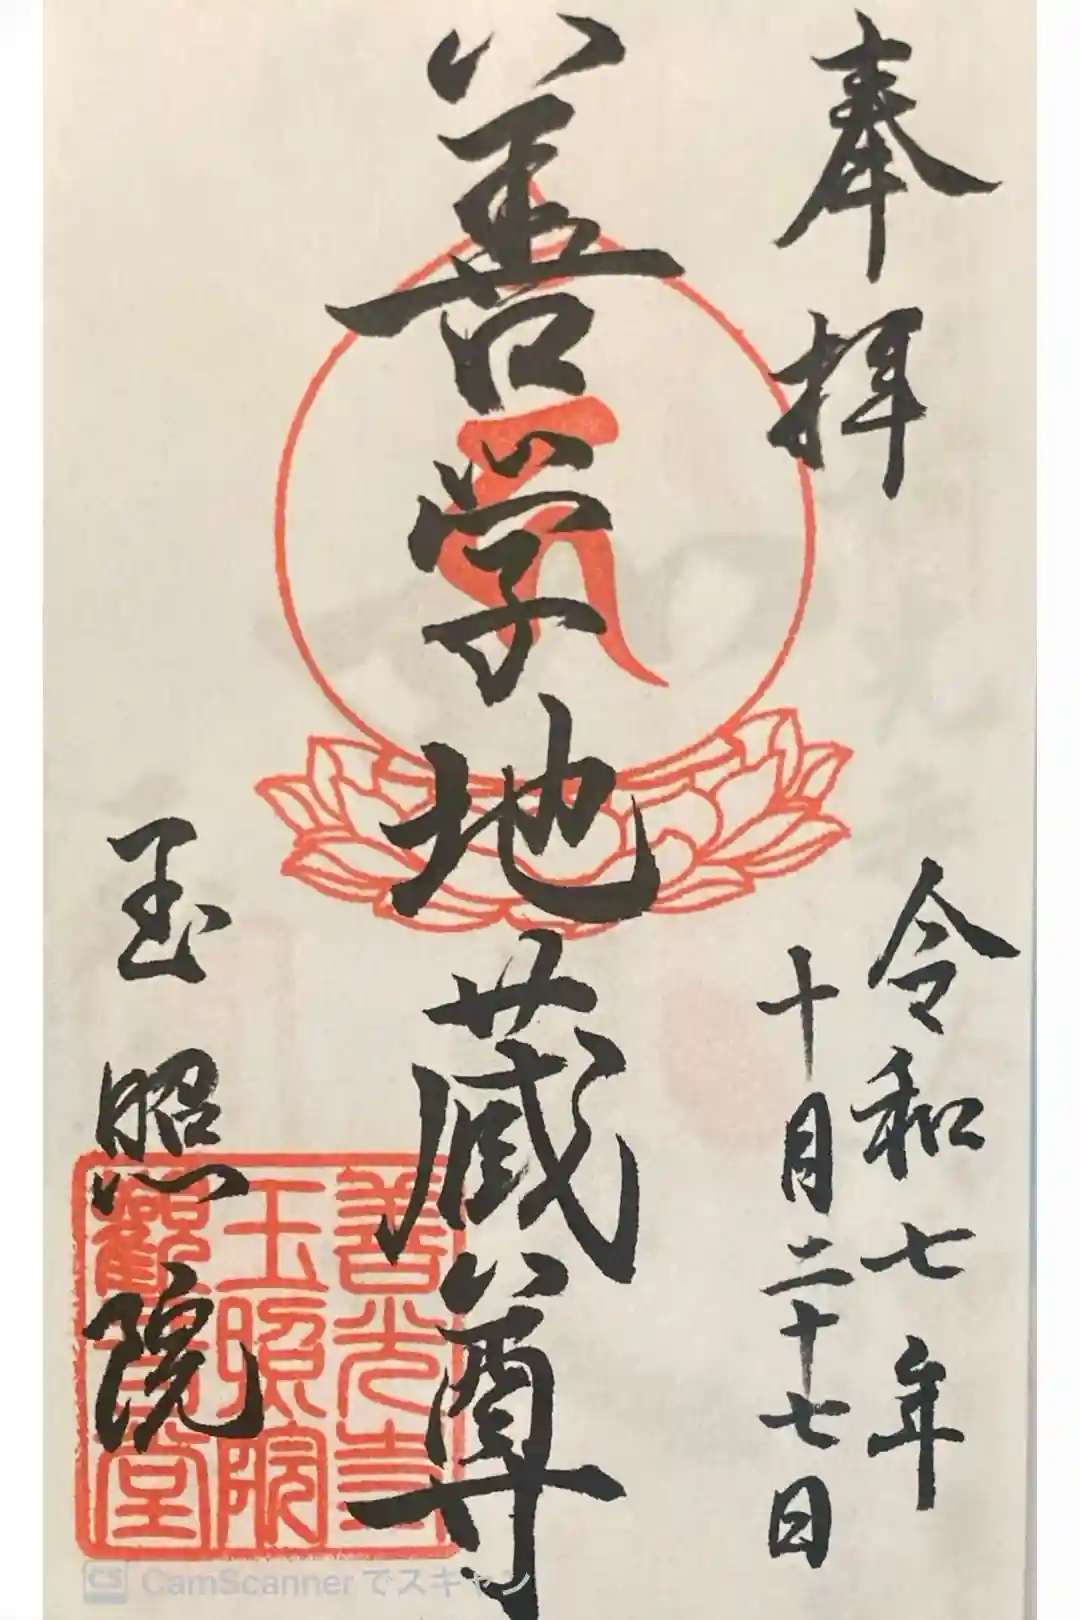 奉拝
令和七年
十月二十七日
善学地蔵尊
玉照院
善光寺
玉照院
観音堂
CS CamScanner でスキャン